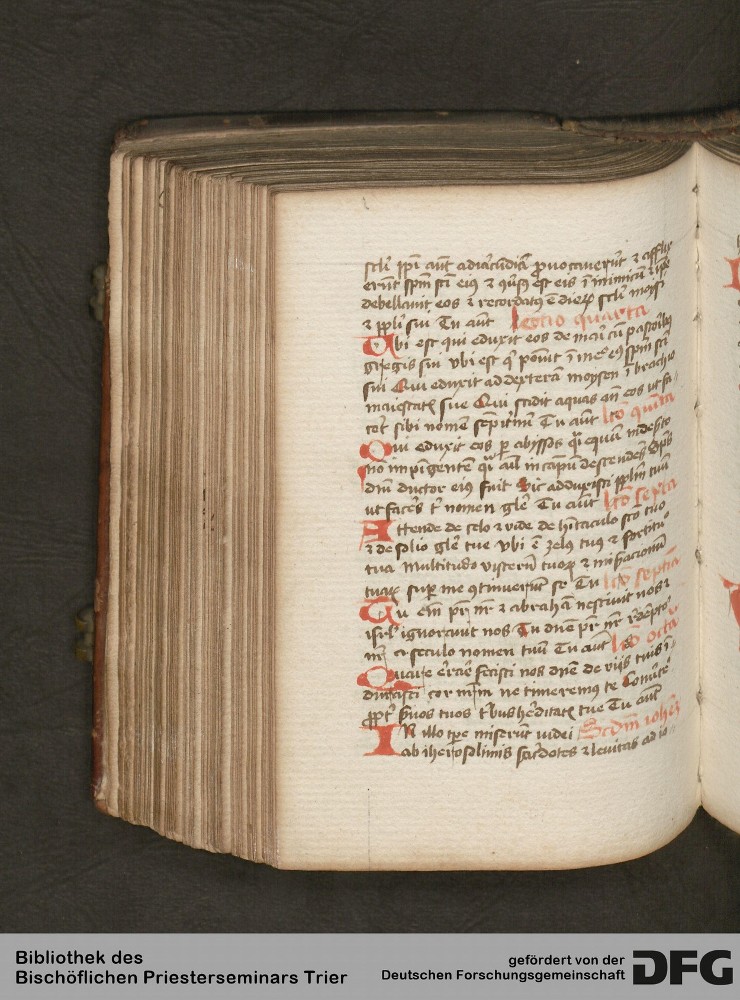 scli ipi aut adiracudia provocaverut et afflix
erut spm sci eius et est eis i inimicu et ipe
debellavit eos et recordatus e dieru scli moisi
et ppli sui Tu aut lectio quarta
Ubi est qui eduxit eos de mari cu pastoribus
gregis sui ubi est q posuit i spm sci
sui Qui eduxit ad dextera moysen i brachio
maiestatis sue Qui scidit aquas an eos ut fa
ret sibi nomen sepiternu Tu aut lco quinta
Qui eduxit eos per abyssos quasi equu in deserto
no impingente qi aial in campu descendes spus
dni ductor eius fuit Sic adduxisti pplm tuu
ut faceres t nomen gle Tu aut lco sexta
Attende de celo et vide de hitaculo sco tuo
et de solio gle tue ubi e zelus tuus et fortitudo
tua multitudo visceru tuoru et misacionum
tuaru super me continuerut se Tu lco septia
Tu em pr nr et abraham nescivit nos et
isrl ignoravit nos Tu dne pr nr redeptor
nr a seculo nomen tuu Tu aut lco octa
Quare errare fecisti nos dne de viis tuis i
durasti cor nrm ne timeremus te Converte
propt suos tuos tribus hereditatis tue Tu aut
In illo tpe miserut iudei Scdm iohem
ab iherosolimis sacerdotes et levitas ad io
Bibliothek des
Bischöflichen Priesterseminars Trier
gefördert von der
Deutschen Forschungsgemeinschaft
DFG